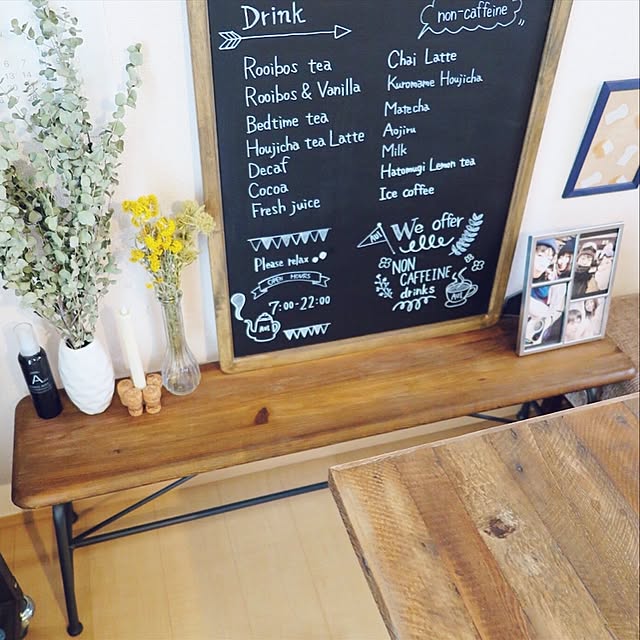 Drink
non-caffeine
Rooibos tea
Rooibos & Vanilla
Bedtime tea
Houjicha tea Latte
Decaf
Cocoa
Fresh juice
Chai Latte
Kuromame Houjicha
Matecha
Aojiru
Milk
Hatomugi Lemon tea
Ice coffee
Please relax
OPEN HOURS
7:00-22:00
We offer
NON
CAFFEINE
drinks
A